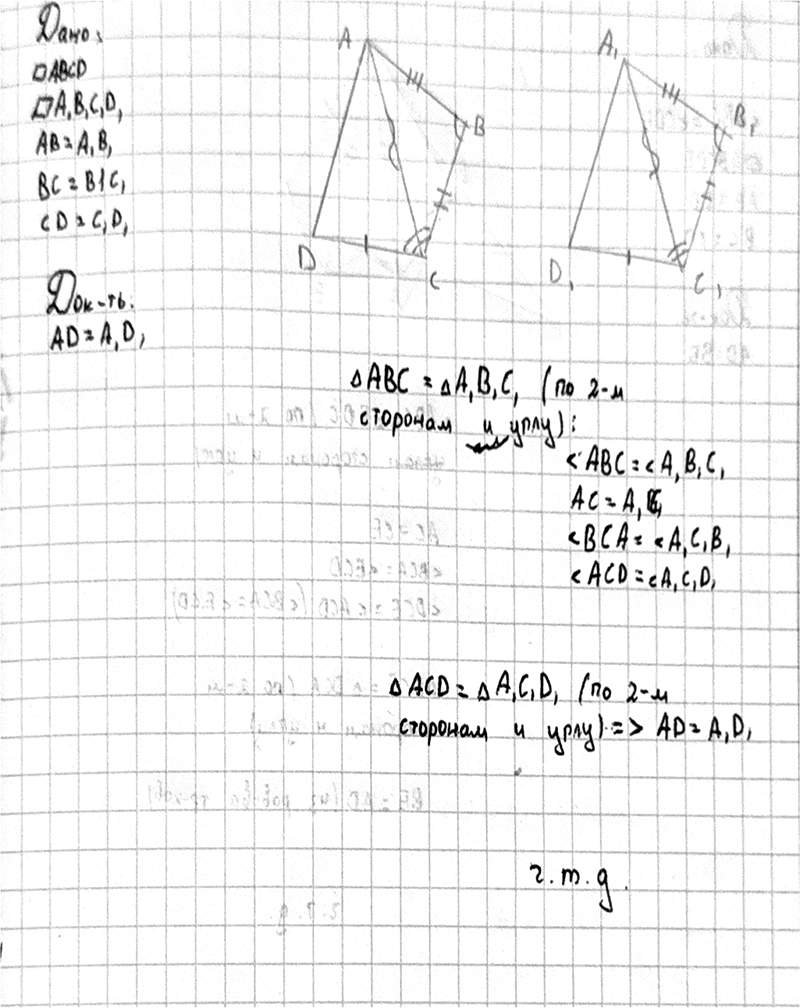 Дано:
▱ABCD
▱A₁B₁C₁D₁
AB=A₁B₁
BC=B1C₁
CD=C₁D₁
Док-ть:
AD=A₁D₁
A
B
C
D
A₁
B₁
C₁
D₁
△ABC = △A₁B₁C₁ (по 2-м
сторонам и углу):
<ABC=<A₁B₁C₁
AC=A₁C₁
<BCA=<A₁C₁B₁
<ACD=<A₁C₁D₁
△ACD=△A₁C₁D₁ (по 2-м
сторонам и углу) => AD=A₁D₁
ч.т.д.